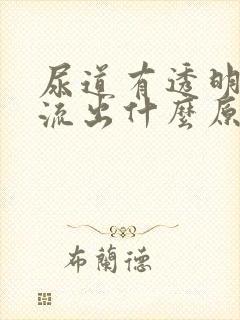 尿道有透明
流出什麼原
布蘭德